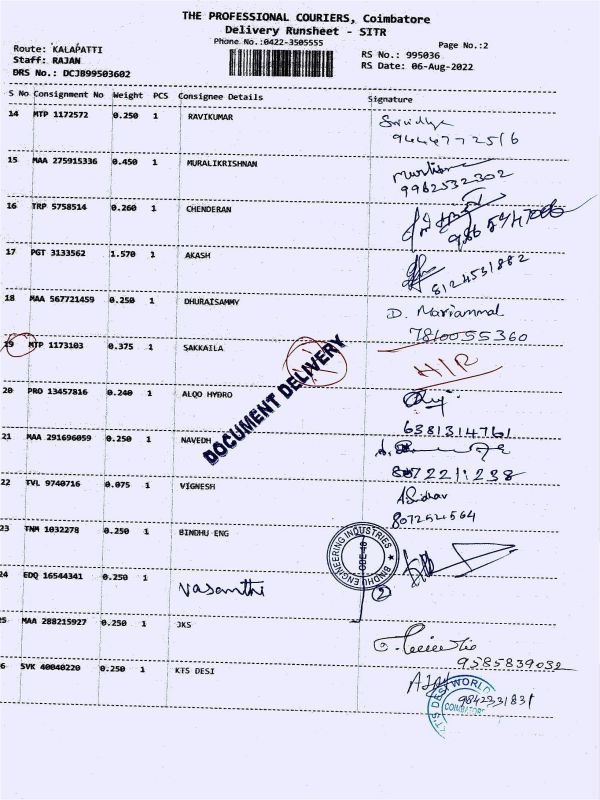 THE PROFESSIONAL COURIERS, Coimbatore
Delivery Runsheet - SITR
Phone No.:0422-3505555
Page No.:2
Route: KALAPATTI
Staff: RAJAN
DRS No.: DCJB99503602
RS No.: 995036
RS Date: 06-Aug-2022
S No Consignment No Weight PCS Consignee Details Signature
14 MTP 1172572 0.250 1 RAVIKUMAR
9444772516
15 MAA 275915336 0.450 1 MURALIKRISHNAN
9962532302
16 TRP 5758514 0.260 1 CHENDERAN
17 PGT 3133562 1.570 1 AKASH
8124531882
18 MAA 567721459 0.250 1 DHURAISAMMY D. Mariammal
7810055360
19 MTP 1173103 0.375 1 SAKKAILA
20 PRO 13457816 0.240 1 ALQO HYDRO
6381314761
DOCUMENT DELIVERY
21 MAA 291696059 0.250 1 NAVEDH
8072211238
22 TVL 9740716 0.075 1 VIGNESH A Sridhar
8072524564
23 TNM 1032278 0.250 1 BINDHU ENG
BINDHU ENGINEERING INDUSTRIES
24 EDQ 16544341 0.250 1 Vasanthi 2
25 MAA 288215927 0.250 1 JKS
9585839032
6 SVK 40040220 0.250 1 KTS DESI AJAY
9842331831
KT'S DESI WORLD